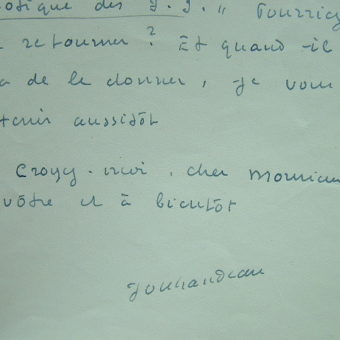 otique des J. J. " Pourriez
retourner ? Et quand il
a de le donner, je vous
tenir aussitôt
Croyez-moi, cher Monsieur
vôtre et à bientôt
Jouhandeau